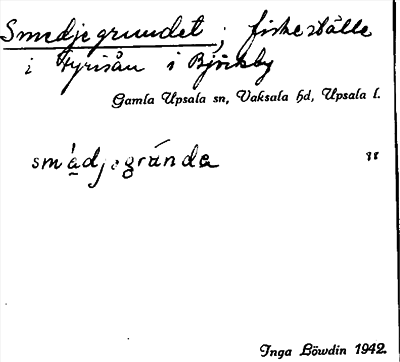 Smedjegrundet, fiskeställe
i Fyrisån i Björkby
Gamla Upsala sn, Vaksala hd, Upsala l.
smädjegrända "
Inga Löwdin 1942.